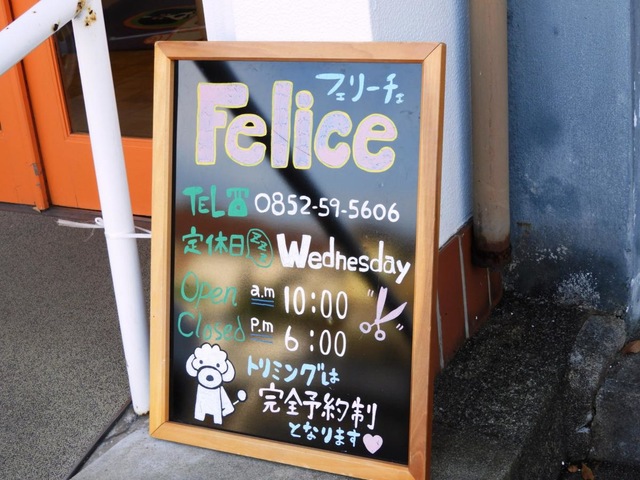 フェリーチェ
Felice
TEL☎ 0852-59-5606
定休日 zzz Wednesday
Open a.m 10:00
Closed P.m 6:00
トリミングは
完全予約制
となります♥